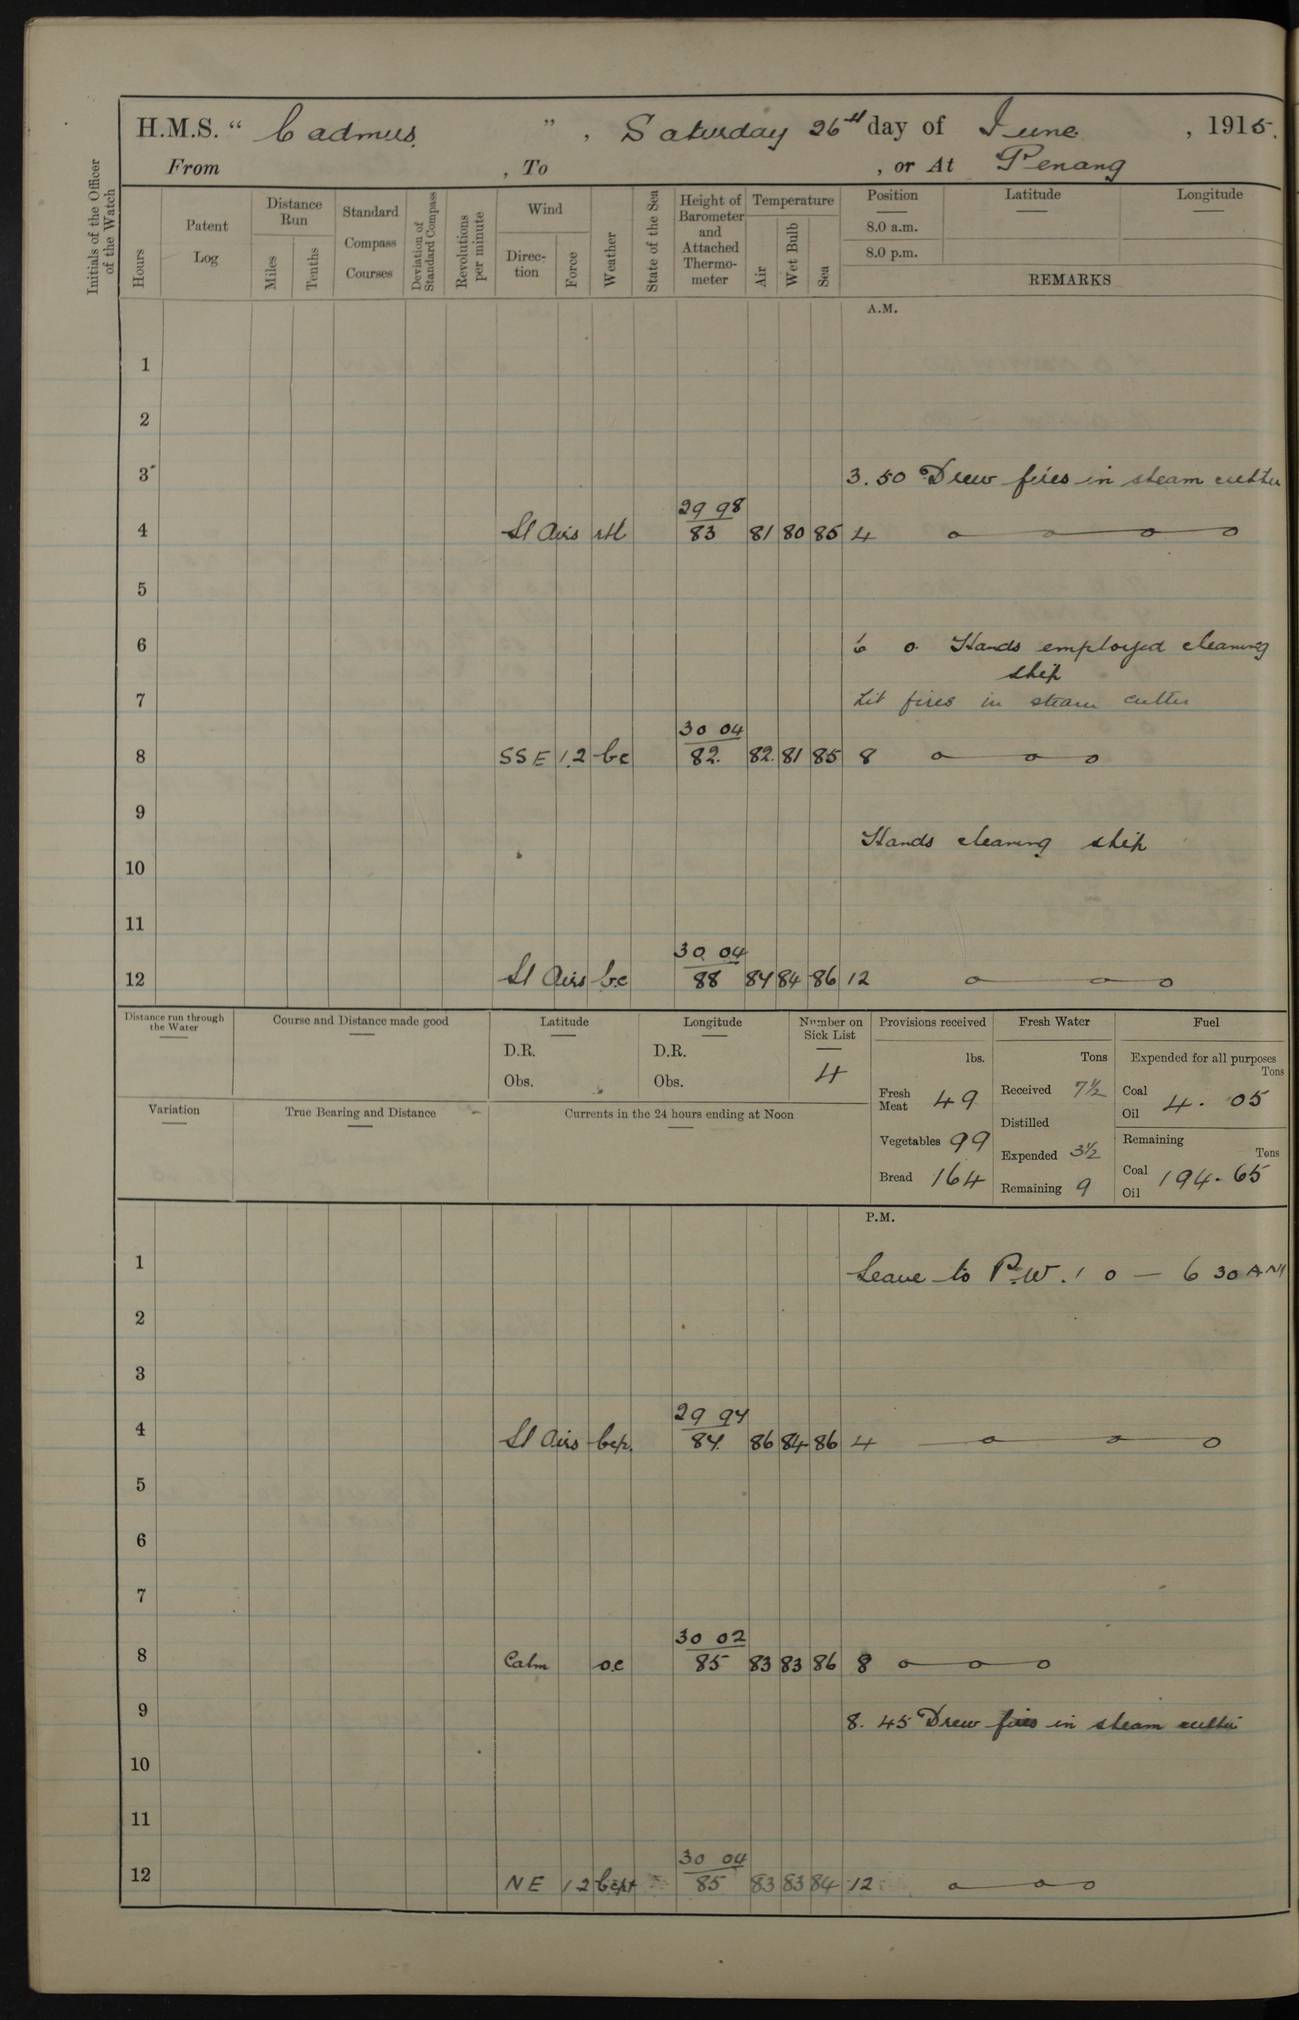 H.M.S. “ Cadmus ” , Saturday 26th day of June , 1915.
From , To , or At Penang
Initials of the Officer of the Watch
Hours
Patent Log
Distance Run
Miles
Tenths
Standard Compass Courses
Deviation of Standard Compass
Revolutions per minute
Wind
Direc-tion
Force
Weather
State of the Sea
Height of Barometer and Attached Thermo-meter
Temperature
Air
Wet Bulb
Sea
Position
8.0 a.m.
8.0 p.m.
Latitude
Longitude
REMARKS
A.M.
1
2
3 3.50 Drew fires in steam cutter
29 98
4 Lt Airs 83 81 80 85 4
5
6 6 0 Hands employed cleaning
ship
7 Lit fires in steam cutter
30 04
8 SSE 1.2 bc 82. 82. 81 85 8
9
Hands cleaning ship
10
11
30 04
12 Lt Airs b.c 88 84 84 86 12
Distance run through the Water
Course and Distance made good
Latitude
D.R.
Obs.
Longitude
D.R.
Obs.
Number on Sick List
4
Provisions received
lbs.
Fresh Meat 49
Vegetables 99
Bread 164
Fresh Water
Tons
Received 7½
Distilled
Expended 3½
Remaining 9
Fuel
Expended for all purposes
Tons
Coal
Oil 4. 05
Remaining
Tons
Coal
Oil 194.65
Variation
True Bearing and Distance
Currents in the 24 hours ending at Noon
P.M.
1 Leave to P.W. 1 0 — 6 30 AM
2
3
29 94
4 Lt Airs bcp. 84 86 84 86 4
5
6
7
30 02
8 Calm o.c 85 83 83 86 8
9 8. 45 Drew fires in steam cutter
10
11
30 04
12 NE 1 2 85 83 83 84 12